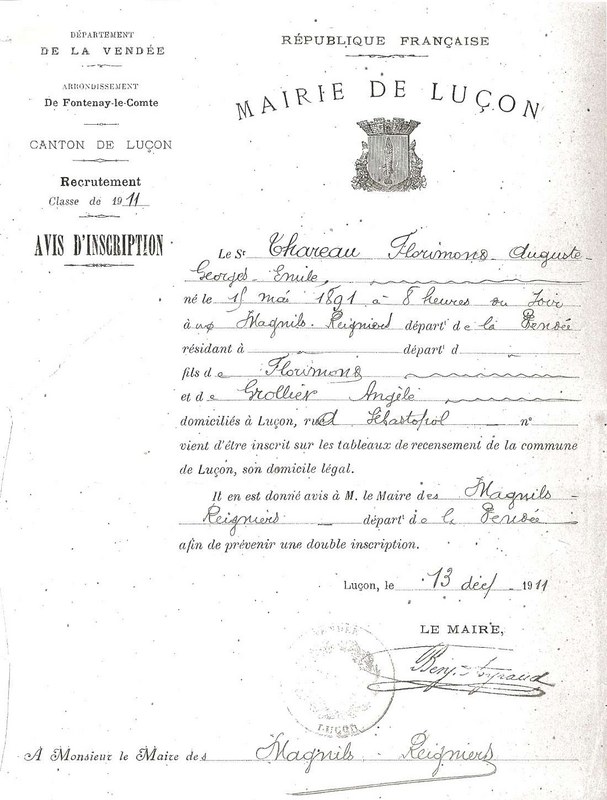 DÉPARTEMENT
DE LA VENDÉE
ARRONDISSEMENT
De Fontenay-le-Comte
CANTON DE LUÇON
Recrutement
Classe de 1911
AVIS D'INSCRIPTION
RÉPUBLIQUE FRANÇAISE
MAIRIE DE LUÇON
Le Sr Thareau Florimond Auguste-
Georges Emile,
né le 15 mai 1891 à 8 heures du soir
à aux Magnils-Reigniers départt de la Vendée
résidant à départt d
fils de Florimond
et de Grollier Angèle
domiciliés à Luçon, rue Sébastopol n°
vient d'être inscrit sur les tableaux de recensement de la commune
de Luçon, son domicile légal.
Il en est donné avis à M. le Maire des Magnils-
Reigniers départt de la Vendée
afin de prévenir une double inscription.
Luçon, le 13 déc 1911
LE MAIRE,
VENDÉE
LUÇON
A Monsieur le Maire des Magnils Reigniers